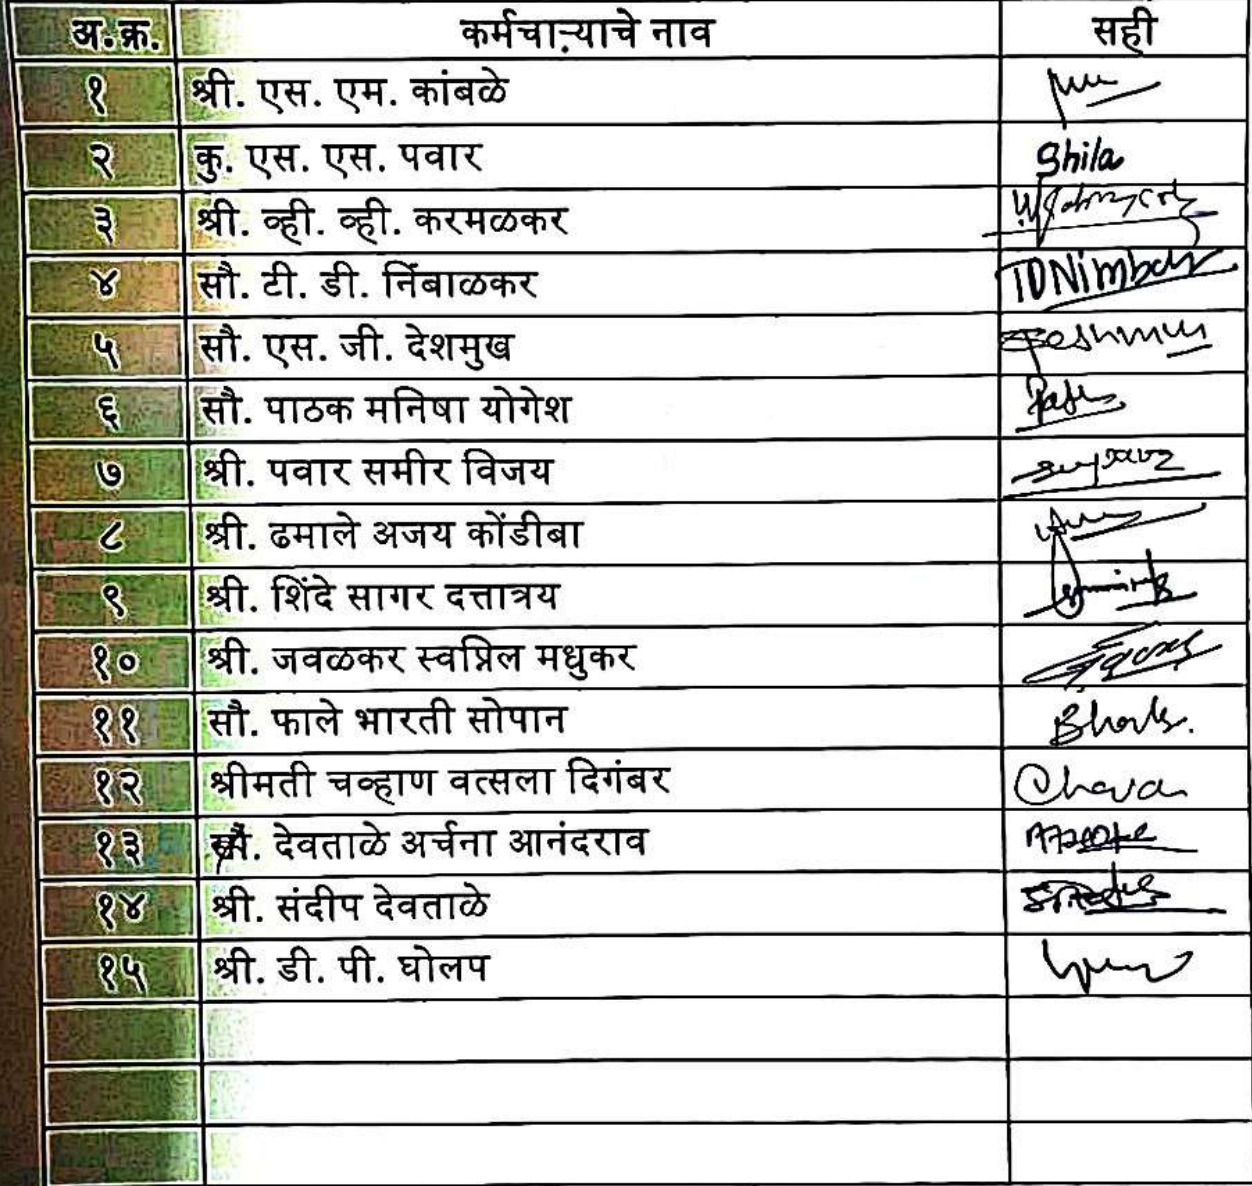 अ.क्र. कर्मचाऱ्याचे नाव सही
१ श्री. एस. एम. कांबळे
२ कु. एस. एस. पवार Shila
३ श्री. व्ही. व्ही. करमळकर
४ सौ. टी. डी. निंबाळकर TDNimbal
५ सौ. एस. जी. देशमुख
६ सौ. पाठक मनिषा योगेश
७ श्री. पवार समीर विजय
८ श्री. ढमाले अजय कोंडीबा
९ श्री. शिंदे सागर दत्तात्रय
१० श्री. जवळकर स्वप्निल मधुकर
११ सौ. फाले भारती सोपान
१२ श्रीमती चव्हाण वत्सला दिगंबर Chavan
१३ सौ. देवताळे अर्चना आनंदराव
१४ श्री. संदीप देवताळे
१५ श्री. डी. पी. घोलप